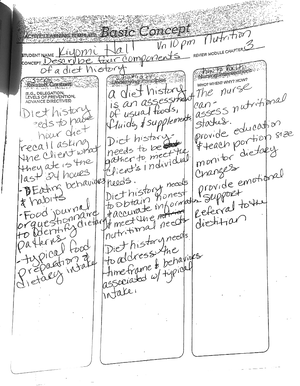 ACTIVE LEARNING TEMPLATE: Basic Concept
STUDENT NAME Kiyomi Hall
Vn 10 pm Nutrition
CONCEPT Describe four components
of a diet history
REVIEW MODULE CHAPTER 3
(E.G., DELEGATION,
LEVELS OF PREVENTION,
ADVANCE DIRECTIVES)
Diet history
needs to have
hour diet
recall asking
the client what
they ate is the
last 24 hours
Eating behaviors
& habits
-Food journal
or questionnaire
to identify dietary
patterns
-typical food
preparation &
dietary intake
a diet history
is an assessment
of usual foods,
fluids, & supplements
Diet history
needs to be
gather to meet the
client's individual
needs.
Diet history needs
to obtain honest
& accurate information
& meet the
nutritional needs
Diet history needs
to address the
timeframe & behaviors
associated w/ typical
intake.
WHO? WHEN? WHY? HOW?
The nurse
can-
assess nutritional
status.
provide education
& teach portion size
monitor dietary
changes
provide emotional
support
Referral to the
dietitian